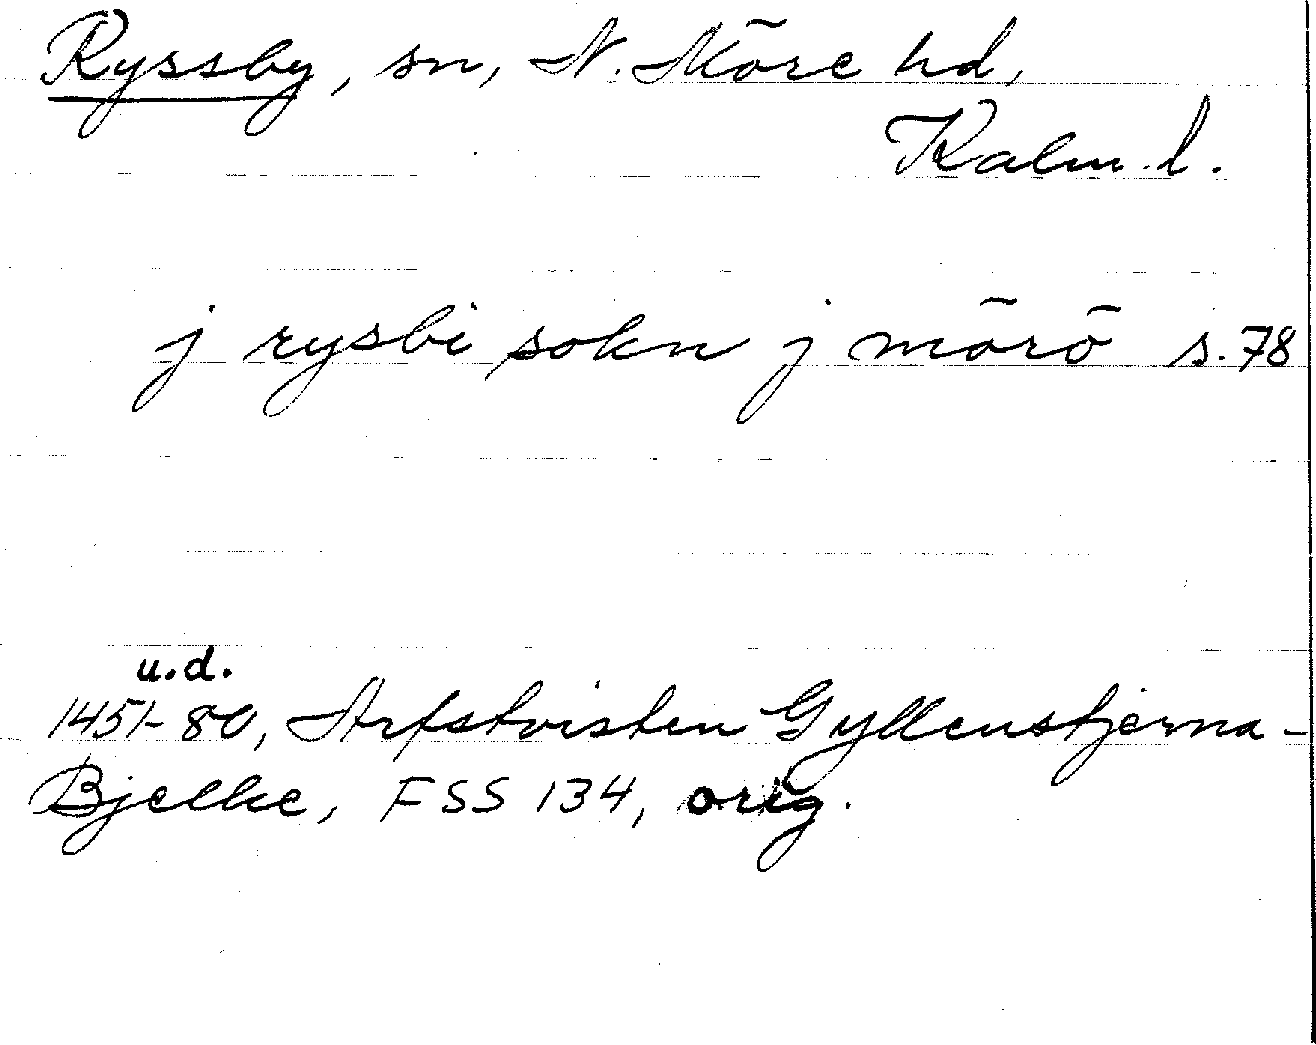 Ryssby, sn, N. Möre hd,
Kalm. l.
j rysbi sokn j mörö s. 78
u.d.
1451-80, Arfstvisten Gyllenstjerna-
Bjelke, FSS 134, orig.